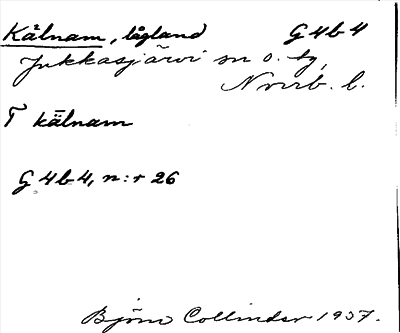 Kålnam, lågland G4b4
Jukkasjärvi sn o. tg,
Norrb. l.
T kālnam
G 4b4, n:r 26
Björn Collinder 1937.